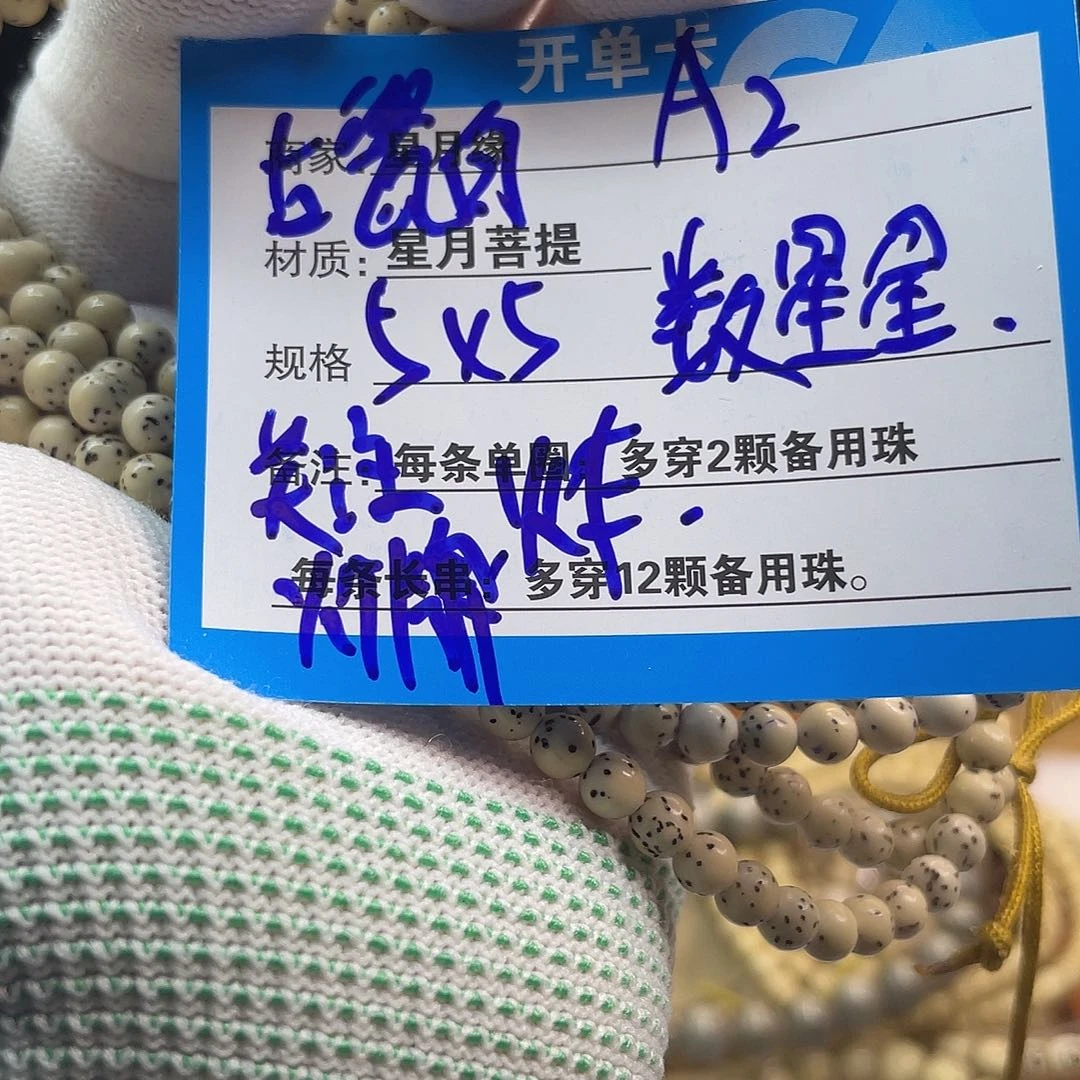 开单卡 A2
商家：星月缘
材质：星月菩提
规格 5x5 数星星.
备注：每条单圈：多穿2颗备用珠
关注 炸.
每条长串：多穿12颗备用珠。